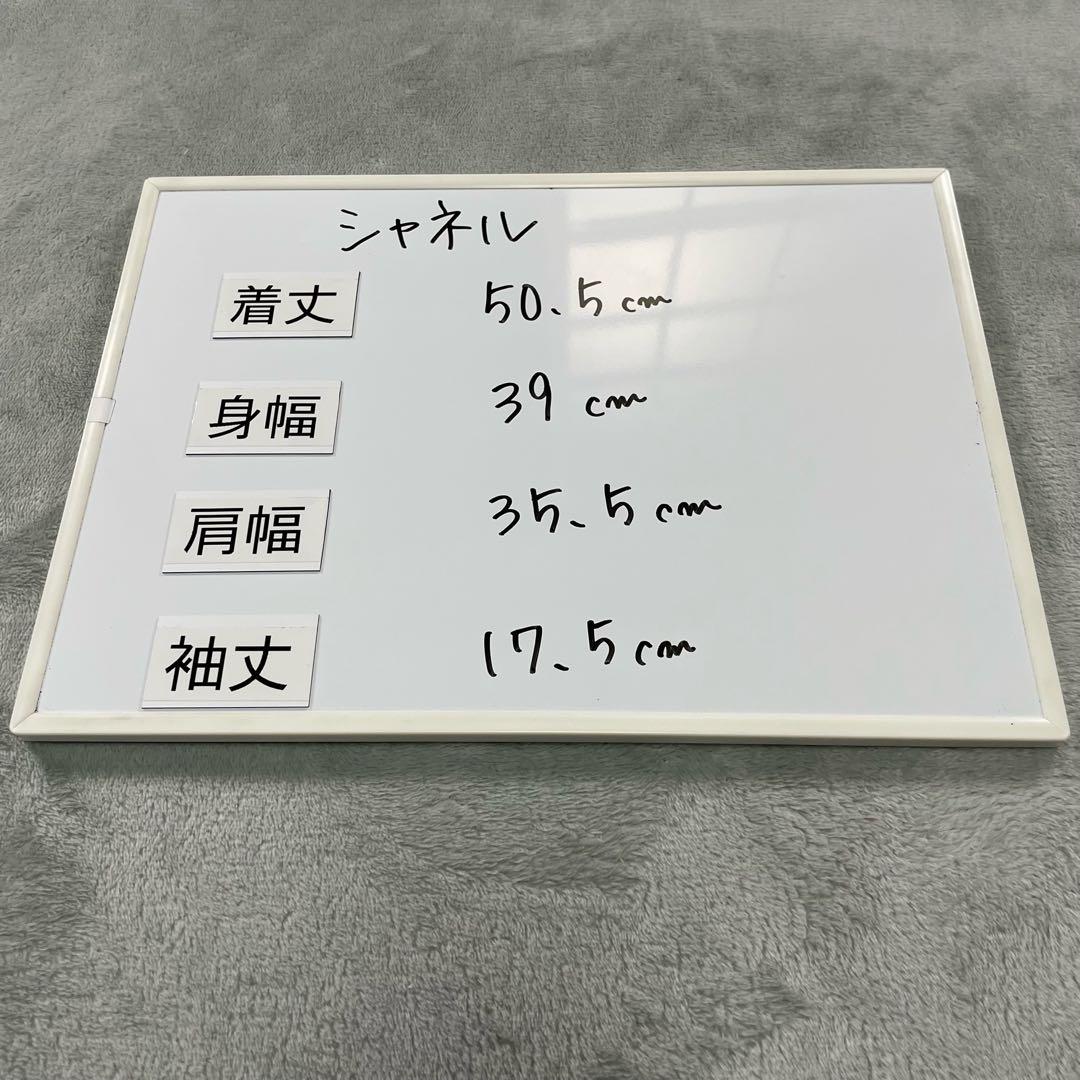 シャネル
着丈 50.5cm
身幅 39cm
肩幅 35.5cm
袖丈 17.5cm